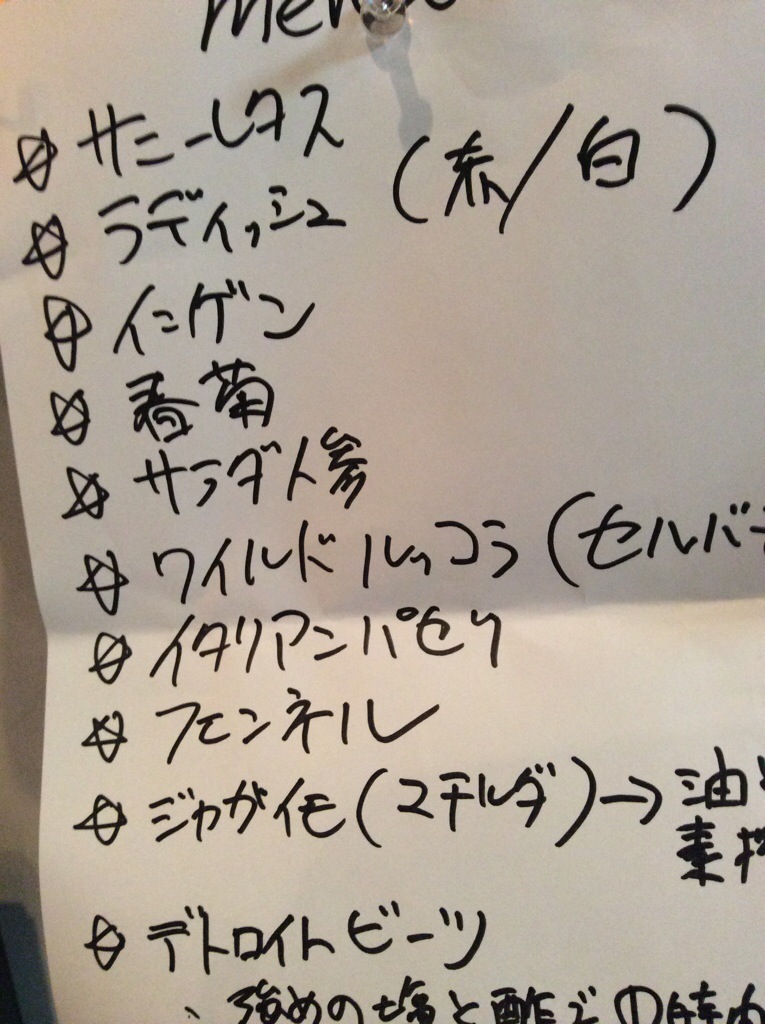 ☆ サニーレタス
☆ ラディッシュ (赤/白)
☆ インゲン
☆ 春菊
☆ サラダ人参
☆ ワイルドルッコラ (セルバ
☆ イタリアンパセリ
☆ フェンネル
☆ ジャガイモ (ステルダ) → 油
素
☆ デトロイトビーツ
強めの塩と酢で